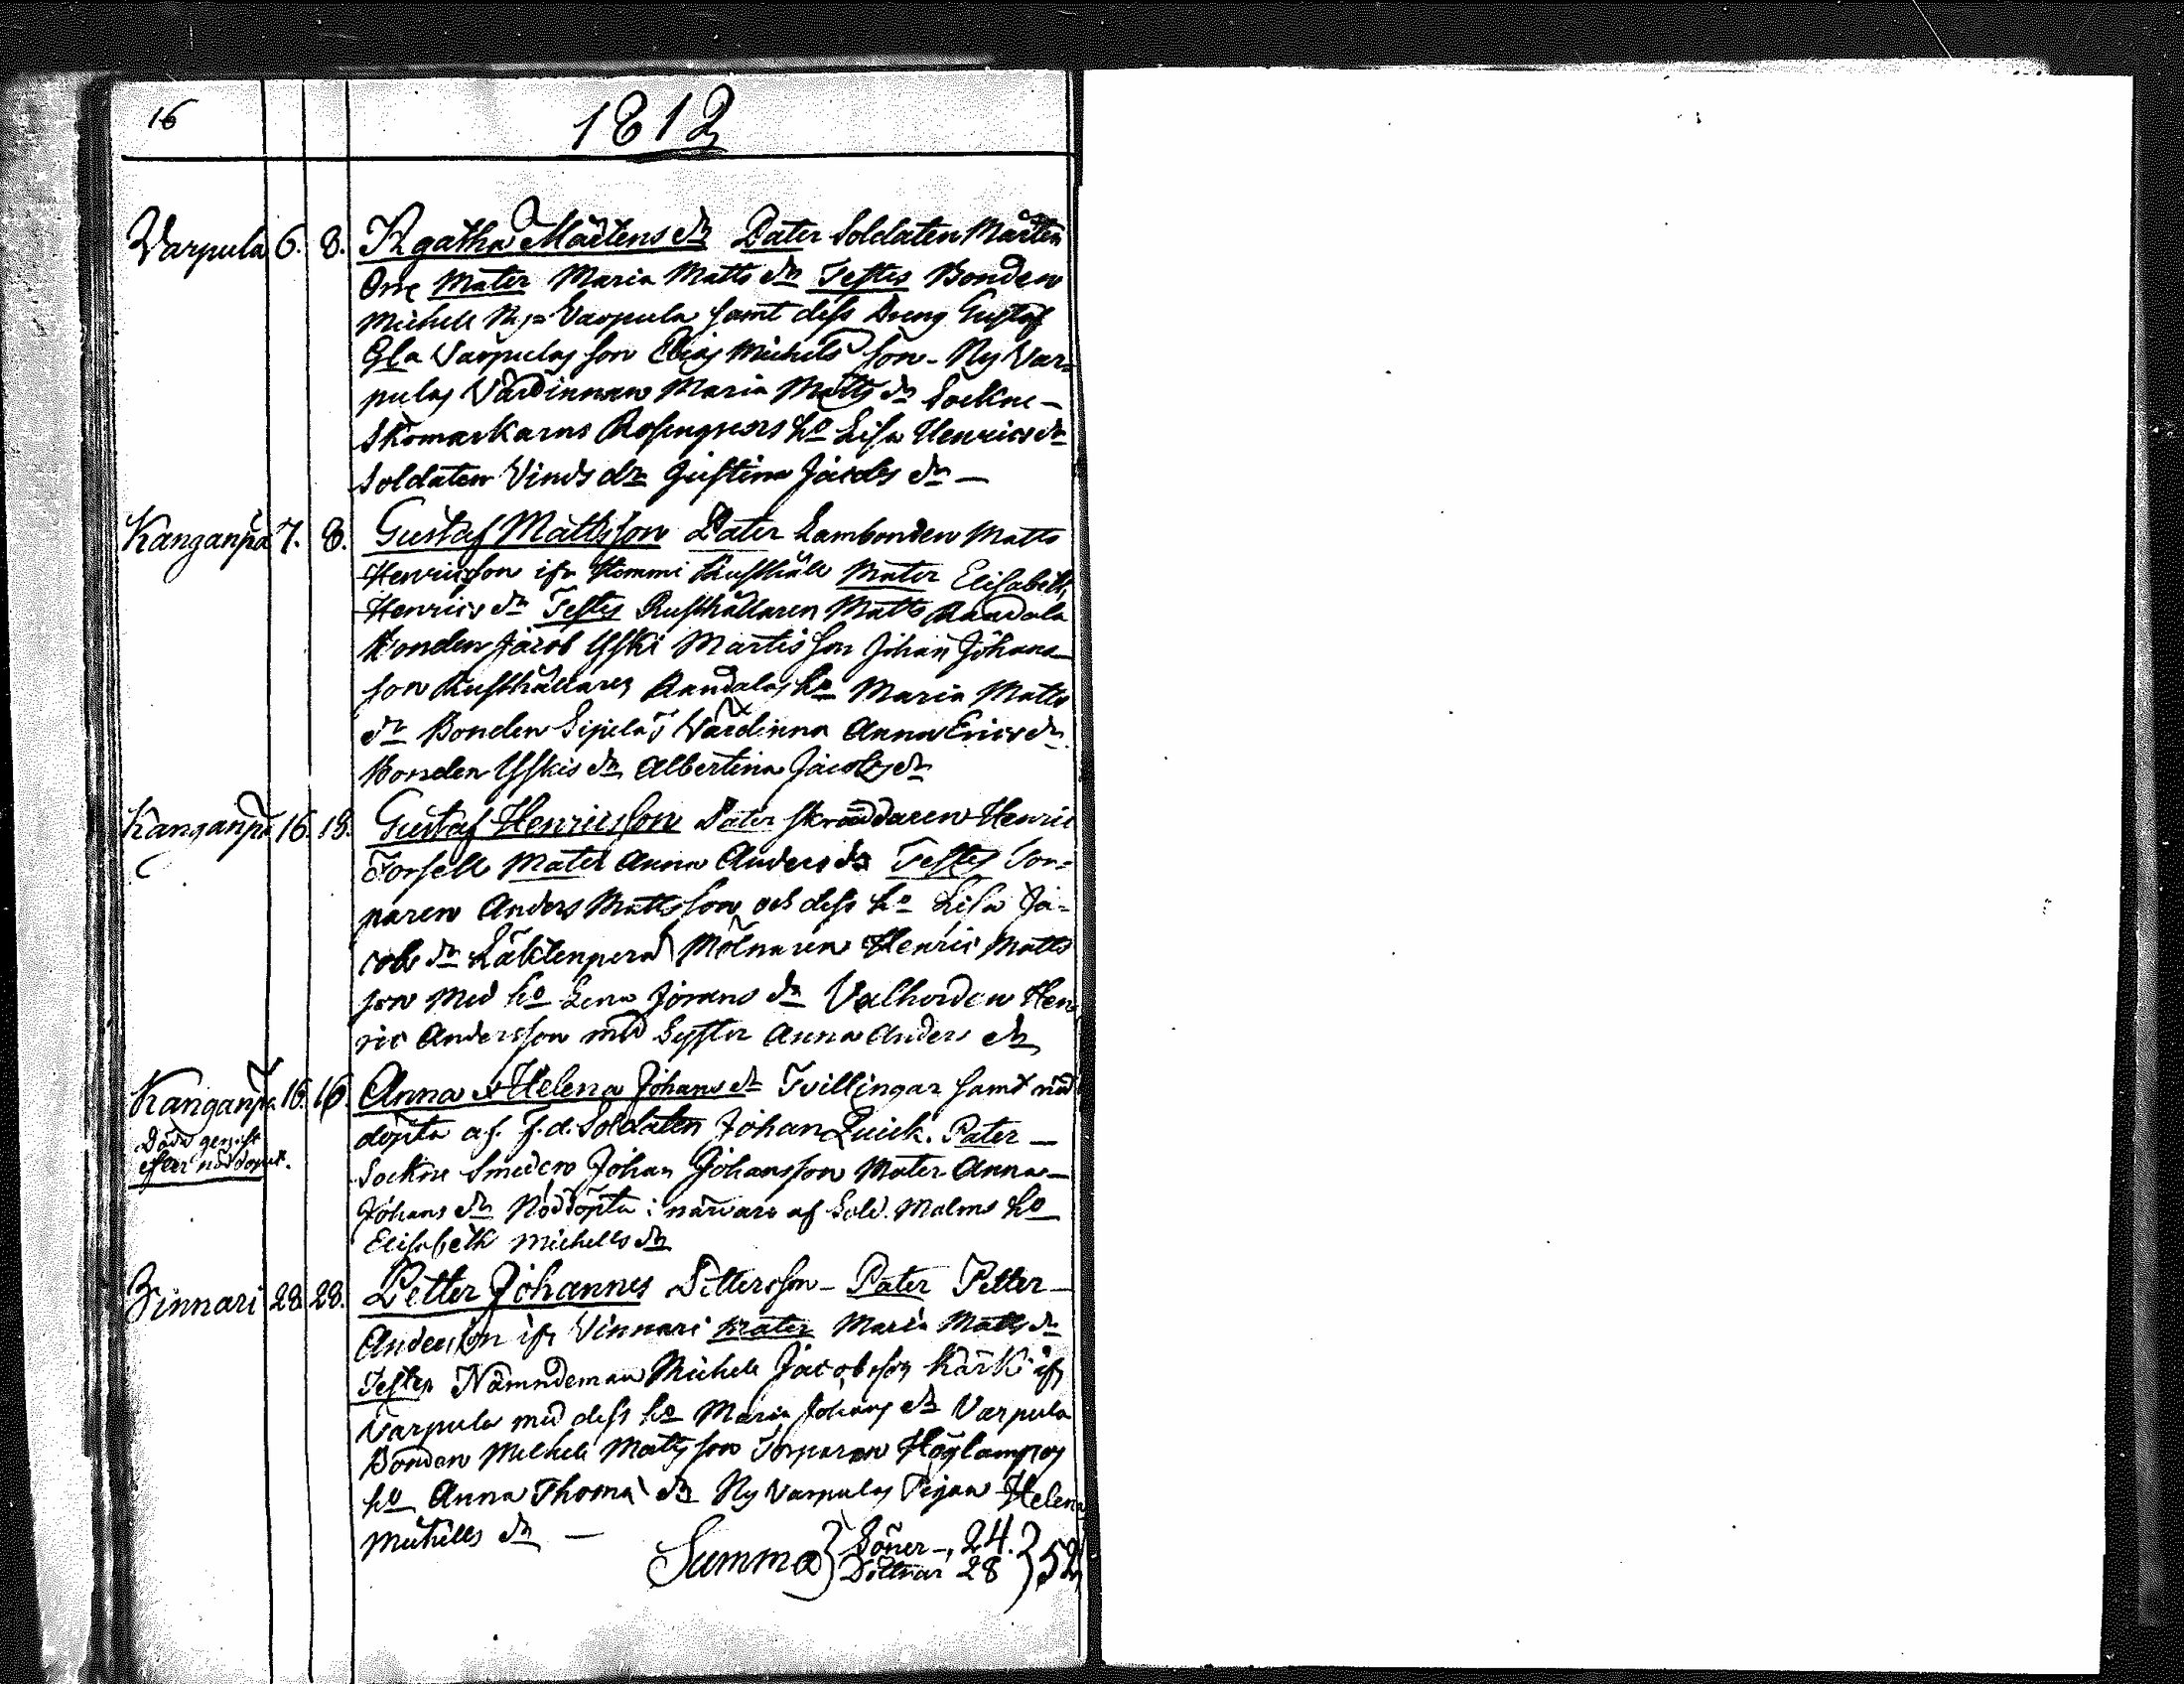 16
1812
Varpula 6. 8. Agatha Mårtens dr Pater Soldaten Mårten
Orre Mater Maria Matts dr Testes Bonden
Michell Ny=Varpula samt dess Dreng Gustaf
Gla Varpulas son Elias Michels son - Ny Var=
pulas Värdinnan Maria Matts dr Sockne-
Skomarkarns Rosenqvists ho Lisa Henrics dr
Soldaten Vinds dr Justina Jacobs dr —
Kanganpä 7. 8. Gustaf Mattsson Pater Lambonden Matts
Henricsson ifr Hommi Rusthåll Mater Elisabeth
Henrics dr Testes Rusthållaren Matts Raudala
Bonden Jacob Yski Martis son Johan Johans-
son Rusthållares Raudalas ho Maria Matts
dr Bonden Sipilas Värdinna Anna Erics dr
Bonden Yskis dr Albertina Jacobs dr
Kanganpä 16. 18. Gustaf Henricsson Pater Skräddaren Henric
Forsell Mater Anna Anders dr Testes Tor=
paren Anders Mattsson och dess ho Lisa Ja=
cobs dr Mölnaren Henric Matts
son med ho Lena Jörans dr Valhorden Hen
ric Andersson med Syster Anna Anders dr
Kanganpä 16. 16. Anna & Helena Johans dr Tvillingar samt nöd
Döda genast
efter nöddopet.
döpta af f.d. Soldaten Johan Quick. Pater —
Sockne Smeden Johan Johansson Mater Anna —
Johans dr Nöddöpta i närvaro af Sold. Malms ho
Elisabeth Michells dr
Vinnari 28. 28. Petter Johannes Pettersson - Pater Petter —
Andersson ifr Vinnari Mater Maria Matts dr
Testes Nämndeman Michell Jacobsson Kärki ifr
Varpula med dess ho Maria Johans dr Varpula
Bonden Michell Mattsson Torparen Höglampis
ho Anna Thomas dr Ny Varpulas Pigan Helena
Michells dr —
Summa } Söner -, 24. } 52
Döttrar 28